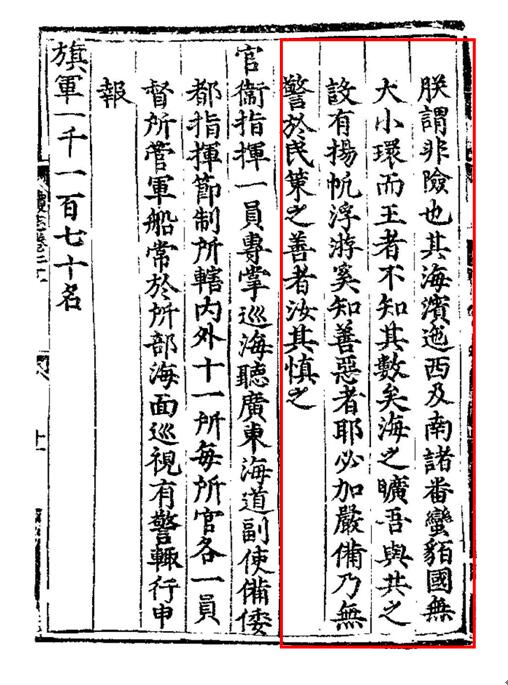 朕謂非險也其海濱迤西及南諸番蠻貊國無
大小環而王者不知其數矣海之曠吾與共之
設有揚帆浮游奚知善惡者耶必加嚴備乃無
警於民策之善者汝其慎之
官衞指揮一員專掌巡海聽廣東海道副使備倭
都指揮節制所轄内外十一所每所官各一員
督所管軍船常於所部海面巡視有警輒行申
報
旗軍一千一百七十名
十一